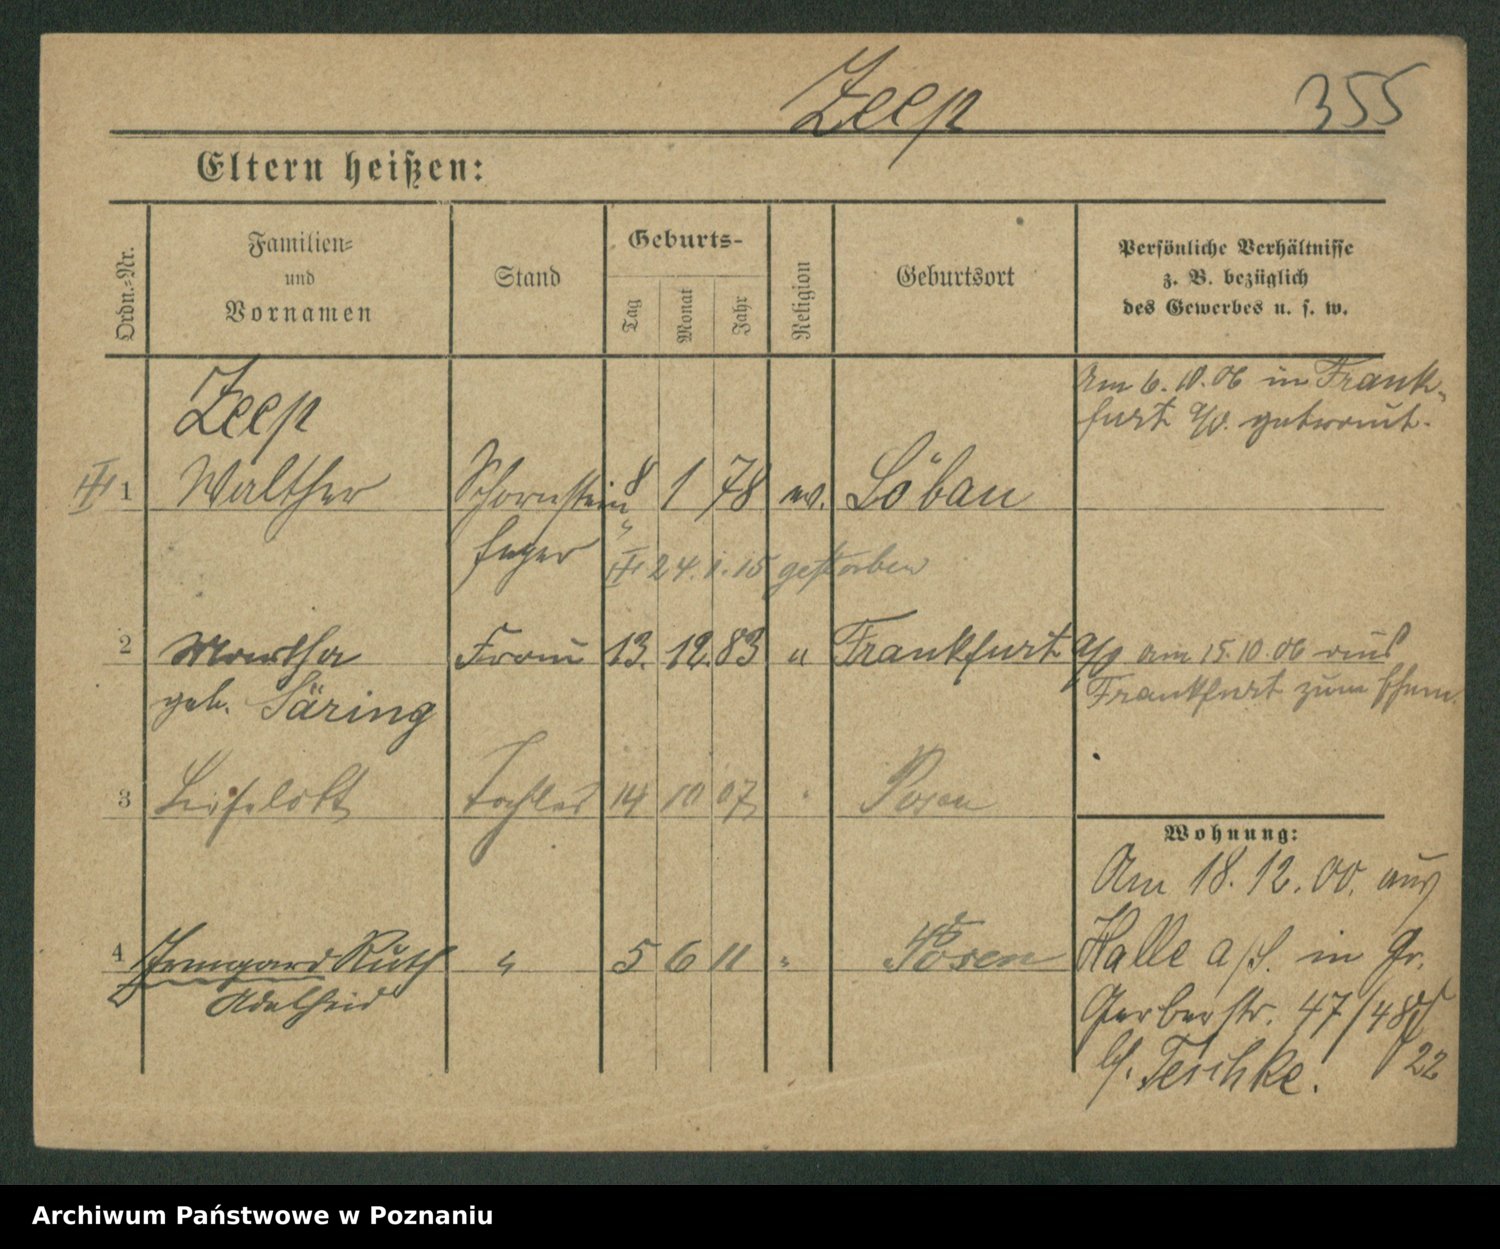 Zeep 355
Eltern heißen:
Ordn.-Nr.
Familien-
und
Vornamen
Stand
Geburts-
Tag
Monat
Jahr
Religion
Geburtsort
Persönliche Verhältnisse
z. B. bezüglich
des Gewerbes u. s. w.
Zeep
Am 6.10.06 in Frank-
furt a/O. getraut.
1 Walther Schornstein 8 1 78 ev. Löbau
feger
24. 1. 15 gestorben
2 Martha Frau 13. 12. 83 " Frankfurt a/O am 15.10.06 aus
geb. Säring
Frankfurt zum Ehem.
3 Liselott Tochter 14 10 07 " Posen
Wohnung:
Am 18. 12. 00. aus
4 Irmgard Ruth " 5 6 11 " Posen
Halle a/S. in Gr.
Adelheid
Gerberstr. 47/48
b/. Teschke. 22
Archiwum Państwowe w Poznaniu